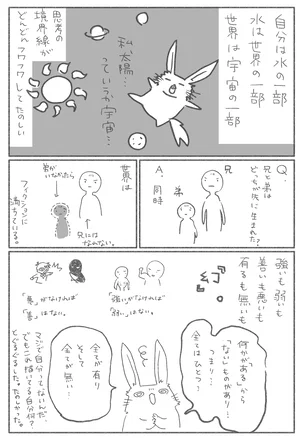 自分は水の一部
水は世界の一部
世界は宇宙の一部
私、太陽…
っていうか宇宙…
思考の
境界線が
どんどんフワフワしてたのしい
Q.
兄と弟は
どちらが先に生まれた?
A.
同時
兄
弟
世界は
弟が
いなかったら
兄には
なれない。
フィクションに
満ちている。
強いも弱いも
善いも悪いも
有るも無いも
『幻』
「強い」がなければ
「弱い」はない。
「善」がなければ
「悪」はない。
何かが「ある」から
「ない」ものがあり…
つまり…
全てはひとつ…
全てが有り
そして
全てが無い…
マジで自分ってないんだ
でもこれ描いてる自分は?
とぐるぐるした。たのしかった。